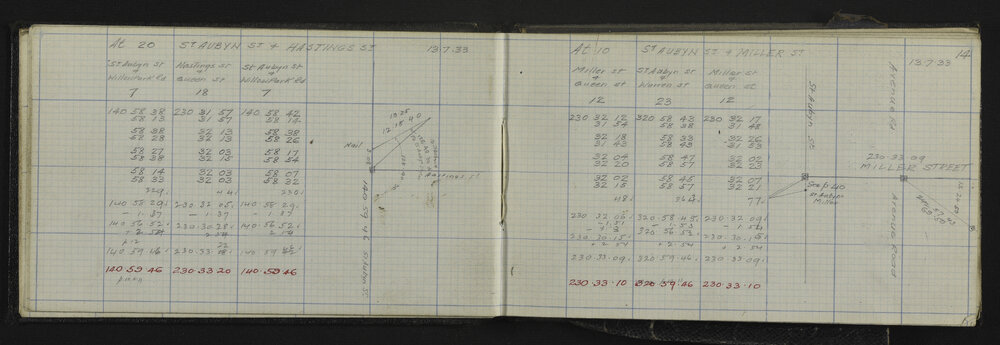 At 20 ST AUBYN ST & HASTINGS ST 13.7.33
St Aubyn St Hastings St St Aubyn St
& & &
Willow Park Rd Queen St Willow Park Rd
7 18 7
140 58 38 230 31 57 140 58 42
58 13 31 57 58 15
58 38 32 13 58 38
58 28 32 13 58 26
58 27 32 03 58 17
58 38 32 15 58 54
58 14 32 03 58 07
58 33 32 03 58 32
229. 44. 230.
140 58 29. 230 32 05. 140 58 29.
- 1.37 - 1.37 - 1.37
140 56 52. 230.30.28. 140 56 52.
+ 2 54 2 54 2 54
140 59 46 230.33. 140 59
140.59.46 230.33 20 140.59 46
Nail
Hastings St
140 59 46 St Aubyn St
At 10 ST AUBYN ST & MILLER ST 13.7.33 14
Miller St St Aubyn St Miller St
& & &
Queen St Warren St Queen St
12 23 12
230 32 12 320 58 43 230 32 17
31 54 58 38 31 48
32 18 58 33 32 26
31 43 58 43 31 33
32 04 58 47 32 02
32 20 58 57 32 23
32 02 58 45 32 07
32 15 58 57 32 21
48. 364. 77.
230 32 06. 320.58.45. 230 32 09.
- 1.51 - 1.53 - 1.54
230.30.15. 320 56 53. 230.30.15.
+ 2.54 + 2.54 + 2.54
230.33.09. 320 59 46. 230.33.09.
230.33.10 320 59.46 230.33.10
St Aubyn St
Avenue Rd
230.33.09
MILLER STREET
See p 40
St Aubyn
Miller
Avenue Road